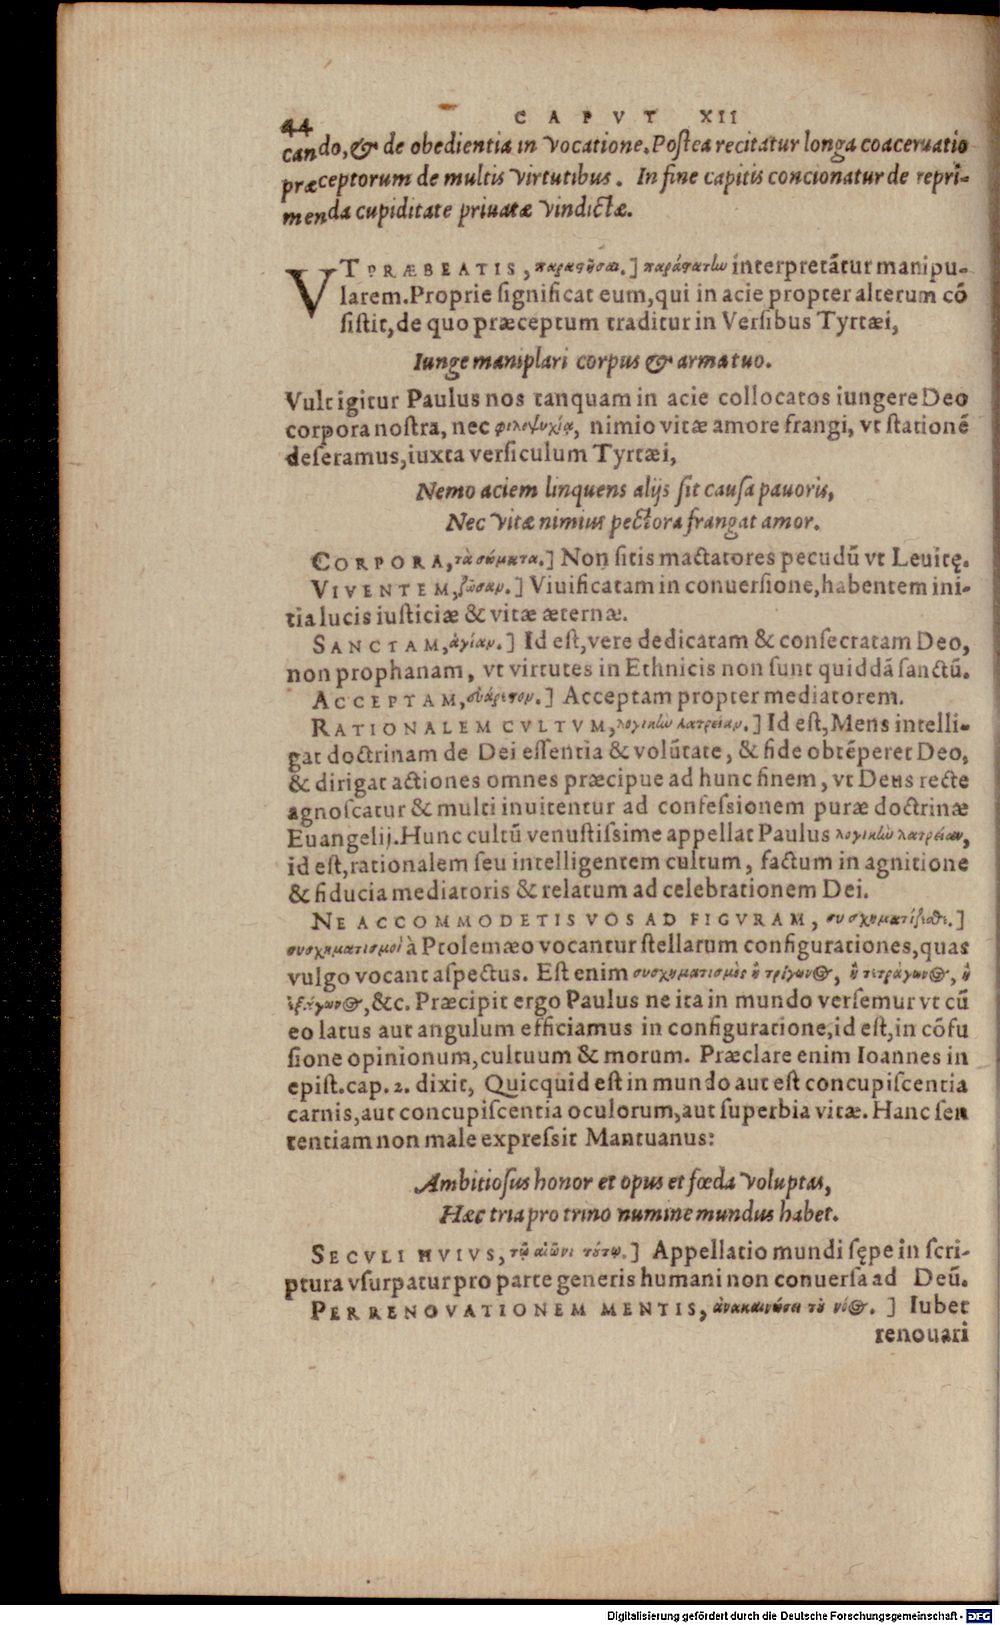 44 CAPVT XII
cando, & de obedientia in vocatione. Postea recitatur longa coaceruatio
præceptorum de multis virtutibus. In fine capitis concionatur de repri-
menda cupiditate priuatæ vindictæ.
VT PRÆBEATIS, παραςῆσαι.] παράςατω interpretātur manipu-
larem. Proprie significat eum, qui in acie propter alterum cō
sistit, de quo præceptum traditur in Versibus Tyrtæi,
Iunge maniplari corpus & arma tuo.
Vult igitur Paulus nos tanquam in acie collocatos iungere Deo
corpora nostra, nec φιλοψυχίᾳ, nimio vitæ amore frangi, vt stationē
deseramus, iuxta versiculum Tyrtæi,
Nemo aciem linquens alijs sit causa pauoris,
Nec vitæ nimius pectora frangat amor.
CORPORA, τὰ σώματα.] Non sitis mactatores pecudū vt Leuitę.
VIVENTEM, ζῶσαν.] Viuificatam in conuersione, habentem ini-
tia lucis iusticiæ & vitæ æternæ.
SANCTAM, ἁγίαν.] Id est, vere dedicatam & consecratam Deo,
non prophanam, vt virtutes in Ethnicis non sunt quiddā sanctū.
ACCEPTAM, εὐάρεςον.] Acceptam propter mediatorem.
RATIONALEM CVLTVM, λογικὼ λατρείαν.] Id est, Mens intelli-
gat doctrinam de Dei essentia & volūtate, & fide obtēperet Deo,
& dirigat actiones omnes præcipue ad hunc finem, vt Deus recte
agnoscatur & multi inuitentur ad confessionem puræ doctrinæ
Euangelij. Hunc cultū venustissime appellat Paulus λογικὼ λατρείαν,
id est, rationalem seu intelligentem cultum, factum in agnitione
& fiducia mediatoris & relatum ad celebrationem Dei.
NE ACCOMMODETIS VOS AD FIGVRAM, συσχηματίζεσθε.]
συσχηματισμοὶ à Ptolemæo vocantur stellarum configurationes, quas
vulgo vocant aspectus. Est enim συσχηματισμὸς ὁ τρίγωνος, ὁ τετράγωνος, ὁ
ἑξάγωνος, &c. Præcipit ergo Paulus ne ita in mundo versemur vt cū
eo latus aut angulum efficiamus in configuratione, id est, in cōfu
sione opinionum, cultuum & morum. Præclare enim Ioannes in
epist. cap. 2. dixit, Quicquid est in mundo aut est concupiscentia
carnis, aut concupiscentia oculorum, aut superbia vitæ. Hanc sen
tentiam non male expressit Mantuanus:
Ambitiosus honor et opus et fœda voluptas,
Hæc tria pro trino numine mundus habet.
SECVLI HVIVS, τῷ αἰῶνι τούτῳ.] Appellatio mundi sępe in scri-
ptura vsurpatur pro parte generis humani non conuersa ad Deū.
PER RENOVATIONEM MENTIS, ἀνακαινώσει τοῦ νοὸς.] Iubet
renouari
Digitalisierung gefördert durch die Deutsche Forschungsgemeinschaft - DFG